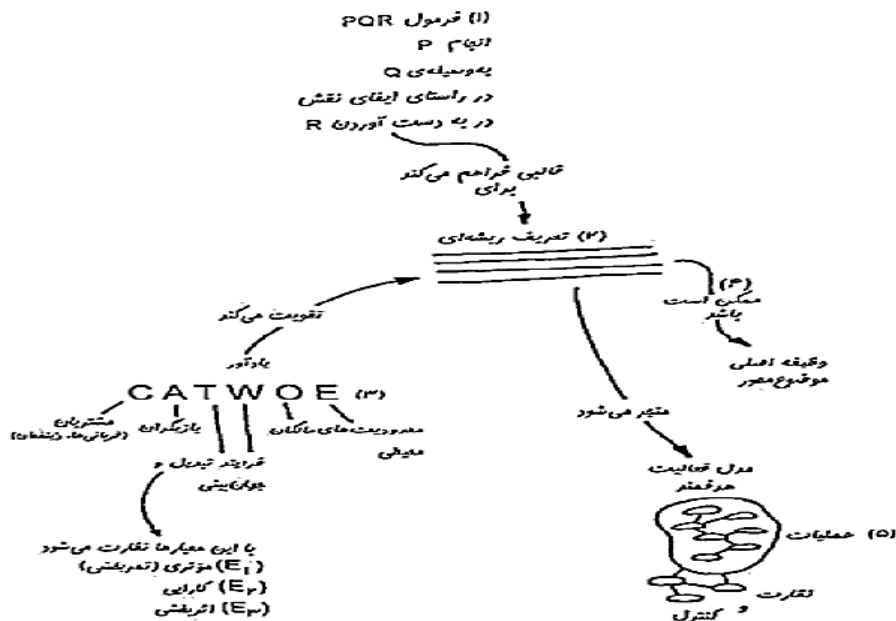 (۱) فرمول PQR
انجام P
به‌وسیله‌ی Q
در راستای ایفای نقش
در به دست آوردن R
قالبی فراهم می‌کند
برای
(۲) تعریف ریشه‌ای
(۴)
ممکن است
باشد
وظیفه اصلی
موضوع‌محور
تقویت می‌کند
یادآور
(۳) CATWOE
مشتریان
(قربانی‌ها، ذینفعان)
بازیگران
مالکان
محدودیت‌های
محیطی
فرایند تبدیل و
جهان‌بینی
با این معیارها نظارت می‌شود
(E۱) مؤثری (ثمربخشی)
(E۲) کارایی
(E۳) اثربخشی
منجر می‌شود
مدل فعالیت
هدفمند
(۵) عملیات
نظارت
و
کنترل